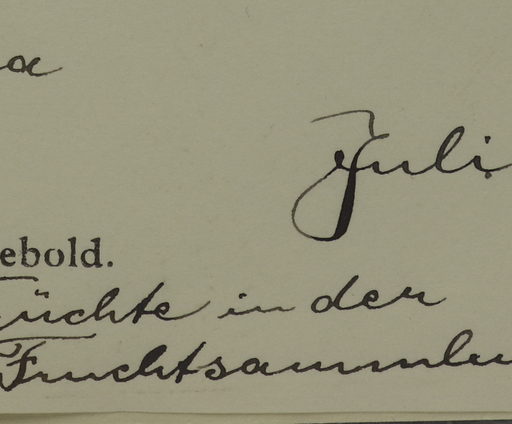 a
Juli
ebold.
Früchte in der
Fruchtsammlu